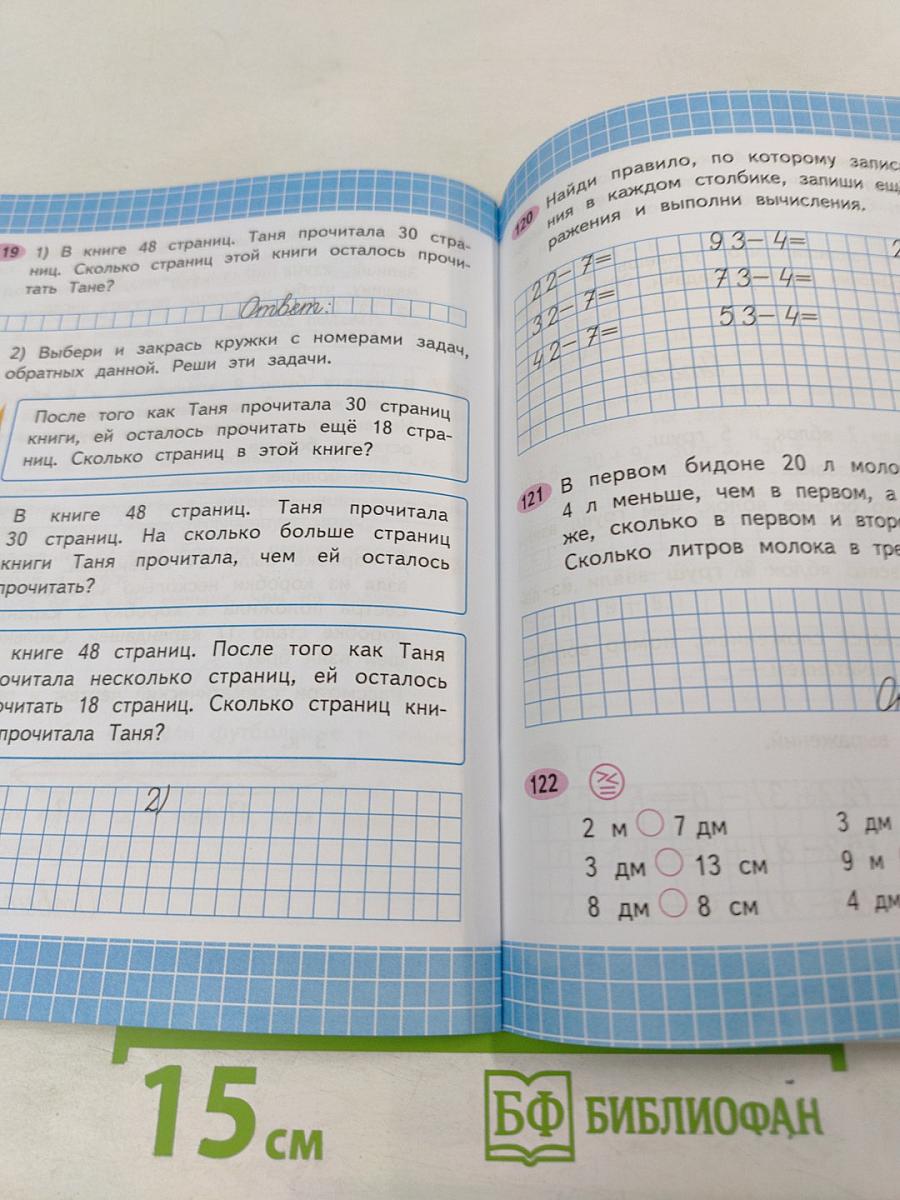 19 1) В книге 48 страниц. Таня прочитала 30 стра-
ниц. Сколько страниц этой книги осталось прочи-
тать Тане?
Ответ:
2) Выбери и закрась кружки с номерами задач,
обратных данной. Реши эти задачи.
После того как Таня прочитала 30 страниц
книги, ей осталось прочитать ещё 18 стра-
ниц. Сколько страниц в этой книге?
В книге 48 страниц. Таня прочитала
30 страниц. На сколько больше страниц
книги Таня прочитала, чем ей осталось
прочитать?
книге 48 страниц. После того как Таня
очитала несколько страниц, ей осталось
очитать 18 страниц. Сколько страниц кни-
прочитала Таня?
2)
120 Найди правило, по которому запис
ния в каждом столбике, запиши ещ
ражения и выполни вычисления.
22-7= 93-4= 2
32-7= 73-4=
42-7= 53-4=
121 В первом бидоне 20 л моло
4 л меньше, чем в первом, а
же, сколько в первом и втор
Сколько литров молока в тре
О
122
2 м 7 дм 3 дм
3 дм 13 см 9 м
8 дм 8 см 4 дм
15 см
БФ БИБЛИОФАН